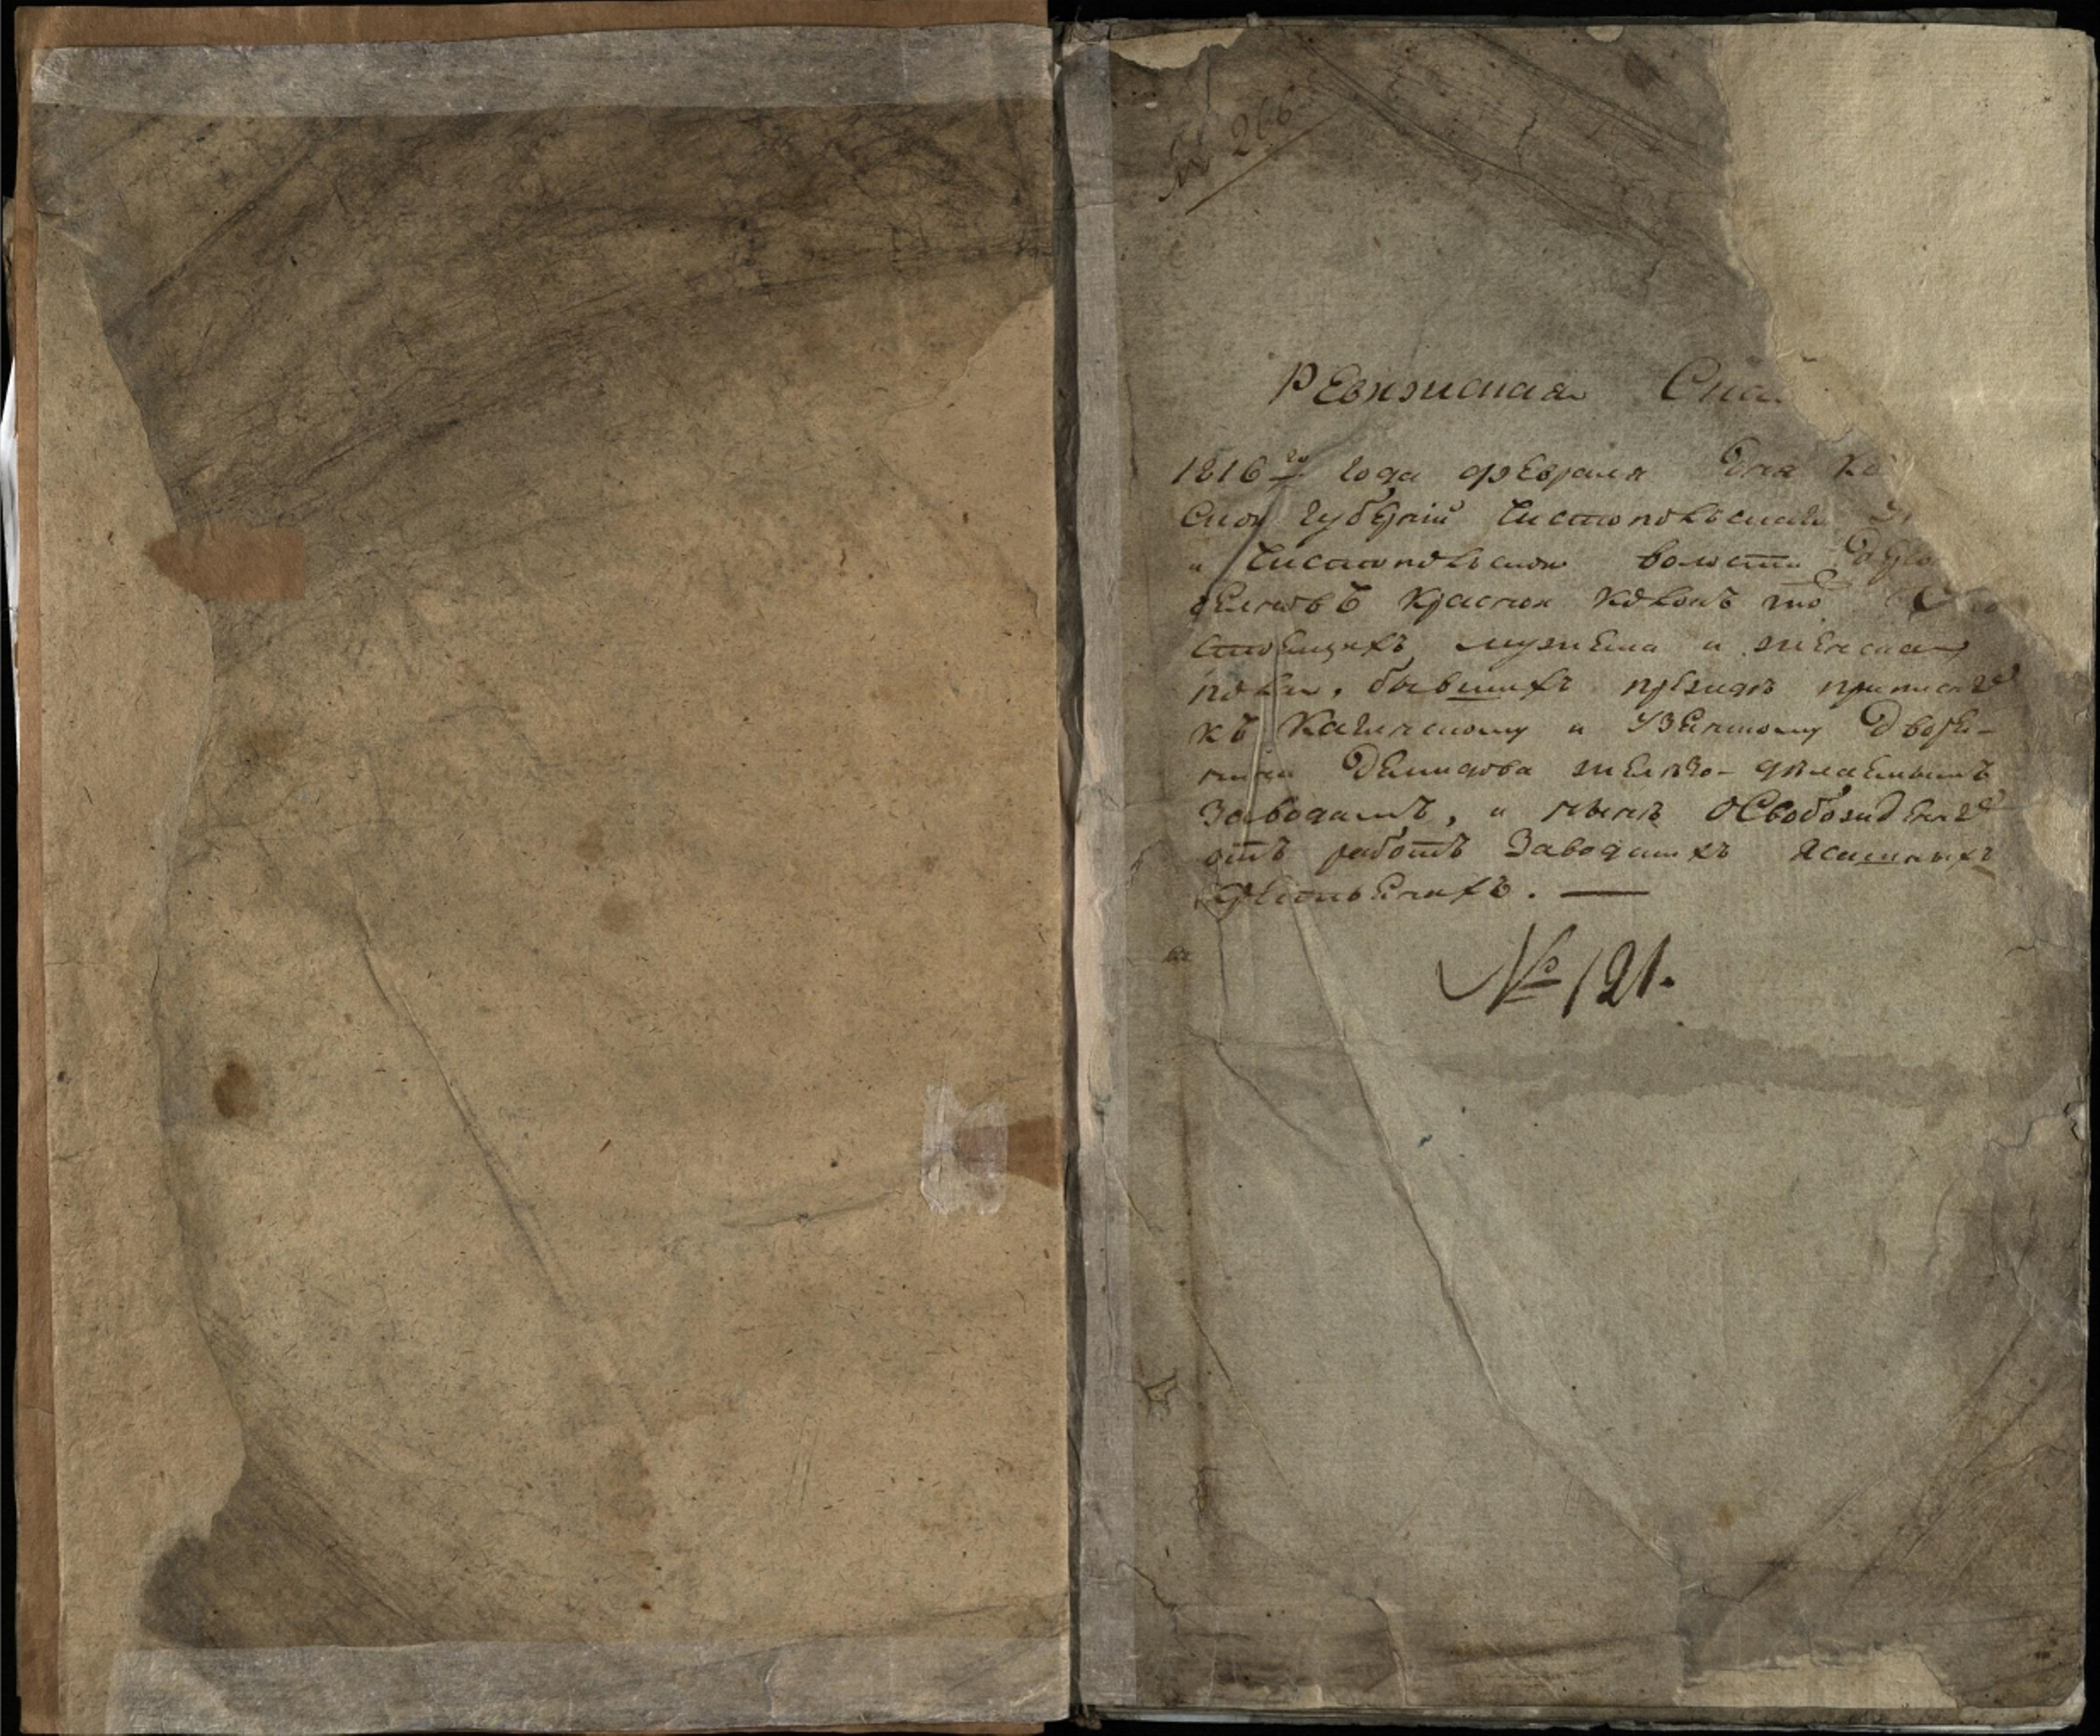 № 266
Ревижская Ска
1816го года февраля дня Ка
ской губернiи Чистопольскаго
и Чистопольской волости
селковъ Красной
стоящихъ мужеска и женска
пола, бывшихъ прежде приписн
къ Кагинскому и Узянскому Дворя-
нина Демидова желѣзо-дѣлаемымъ
Заводамъ, и нынѣ освобожденн
отъ работъ Заводскихъ Ясашныхъ
Крестьянахъ. —
№ 121.